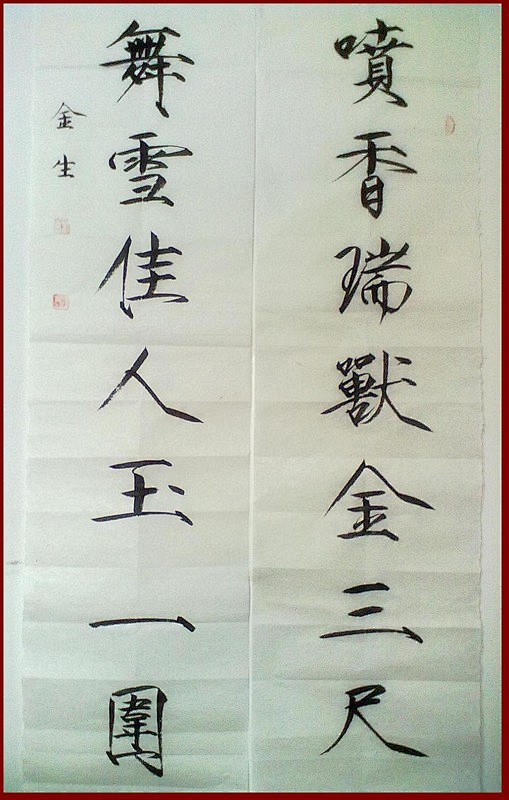 噴香瑞獸金三尺
舞雪佳人玉一圍
金生